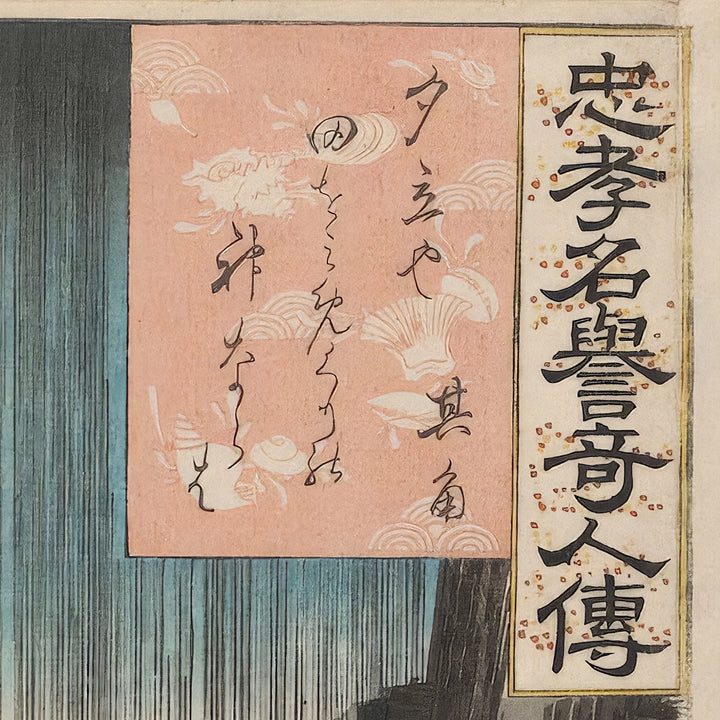 忠孝名譽奇人傳
夕立や 其角
田をみめくりの
神ならは